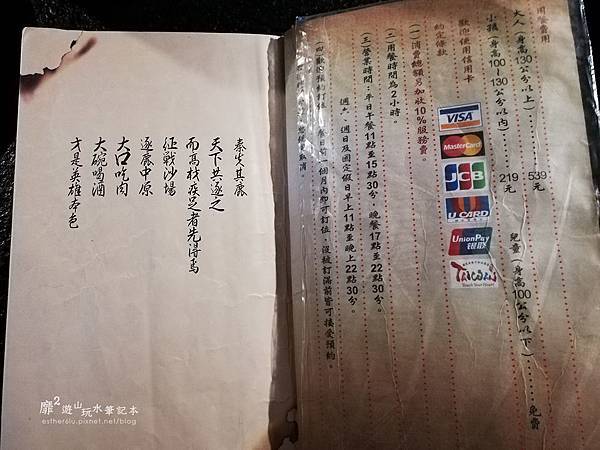 用餐費用
大人(身高130公分以上)............539元
小孩(身高100~130公分以內)......219元 兒童(身高100公分以下)......免費
歡迎使用信用卡
VISA
MasterCard
JCB
U CARD
UnionPay
銀聯
TAIWAN
Touch Your Heart
約定條款
(一)消費總額另加收10%服務費。
(二)用餐時間為2小時。
(三)營業時間:平日午餐11點至15點30分。晚餐17點至22點30分。
週六、週日及國定假日早上11點至晚上22點30分。
餐日前一個月內即可訂位,沒被訂滿前皆可接受預約。
秦失其鹿
天下共逐之
而高材疾足者先得焉
征戰沙場
逐鹿中原
大口吃肉
大碗喝酒
才是英雄本色
靡²遊山玩水筆記本
estherolu.pixnet.net/blog